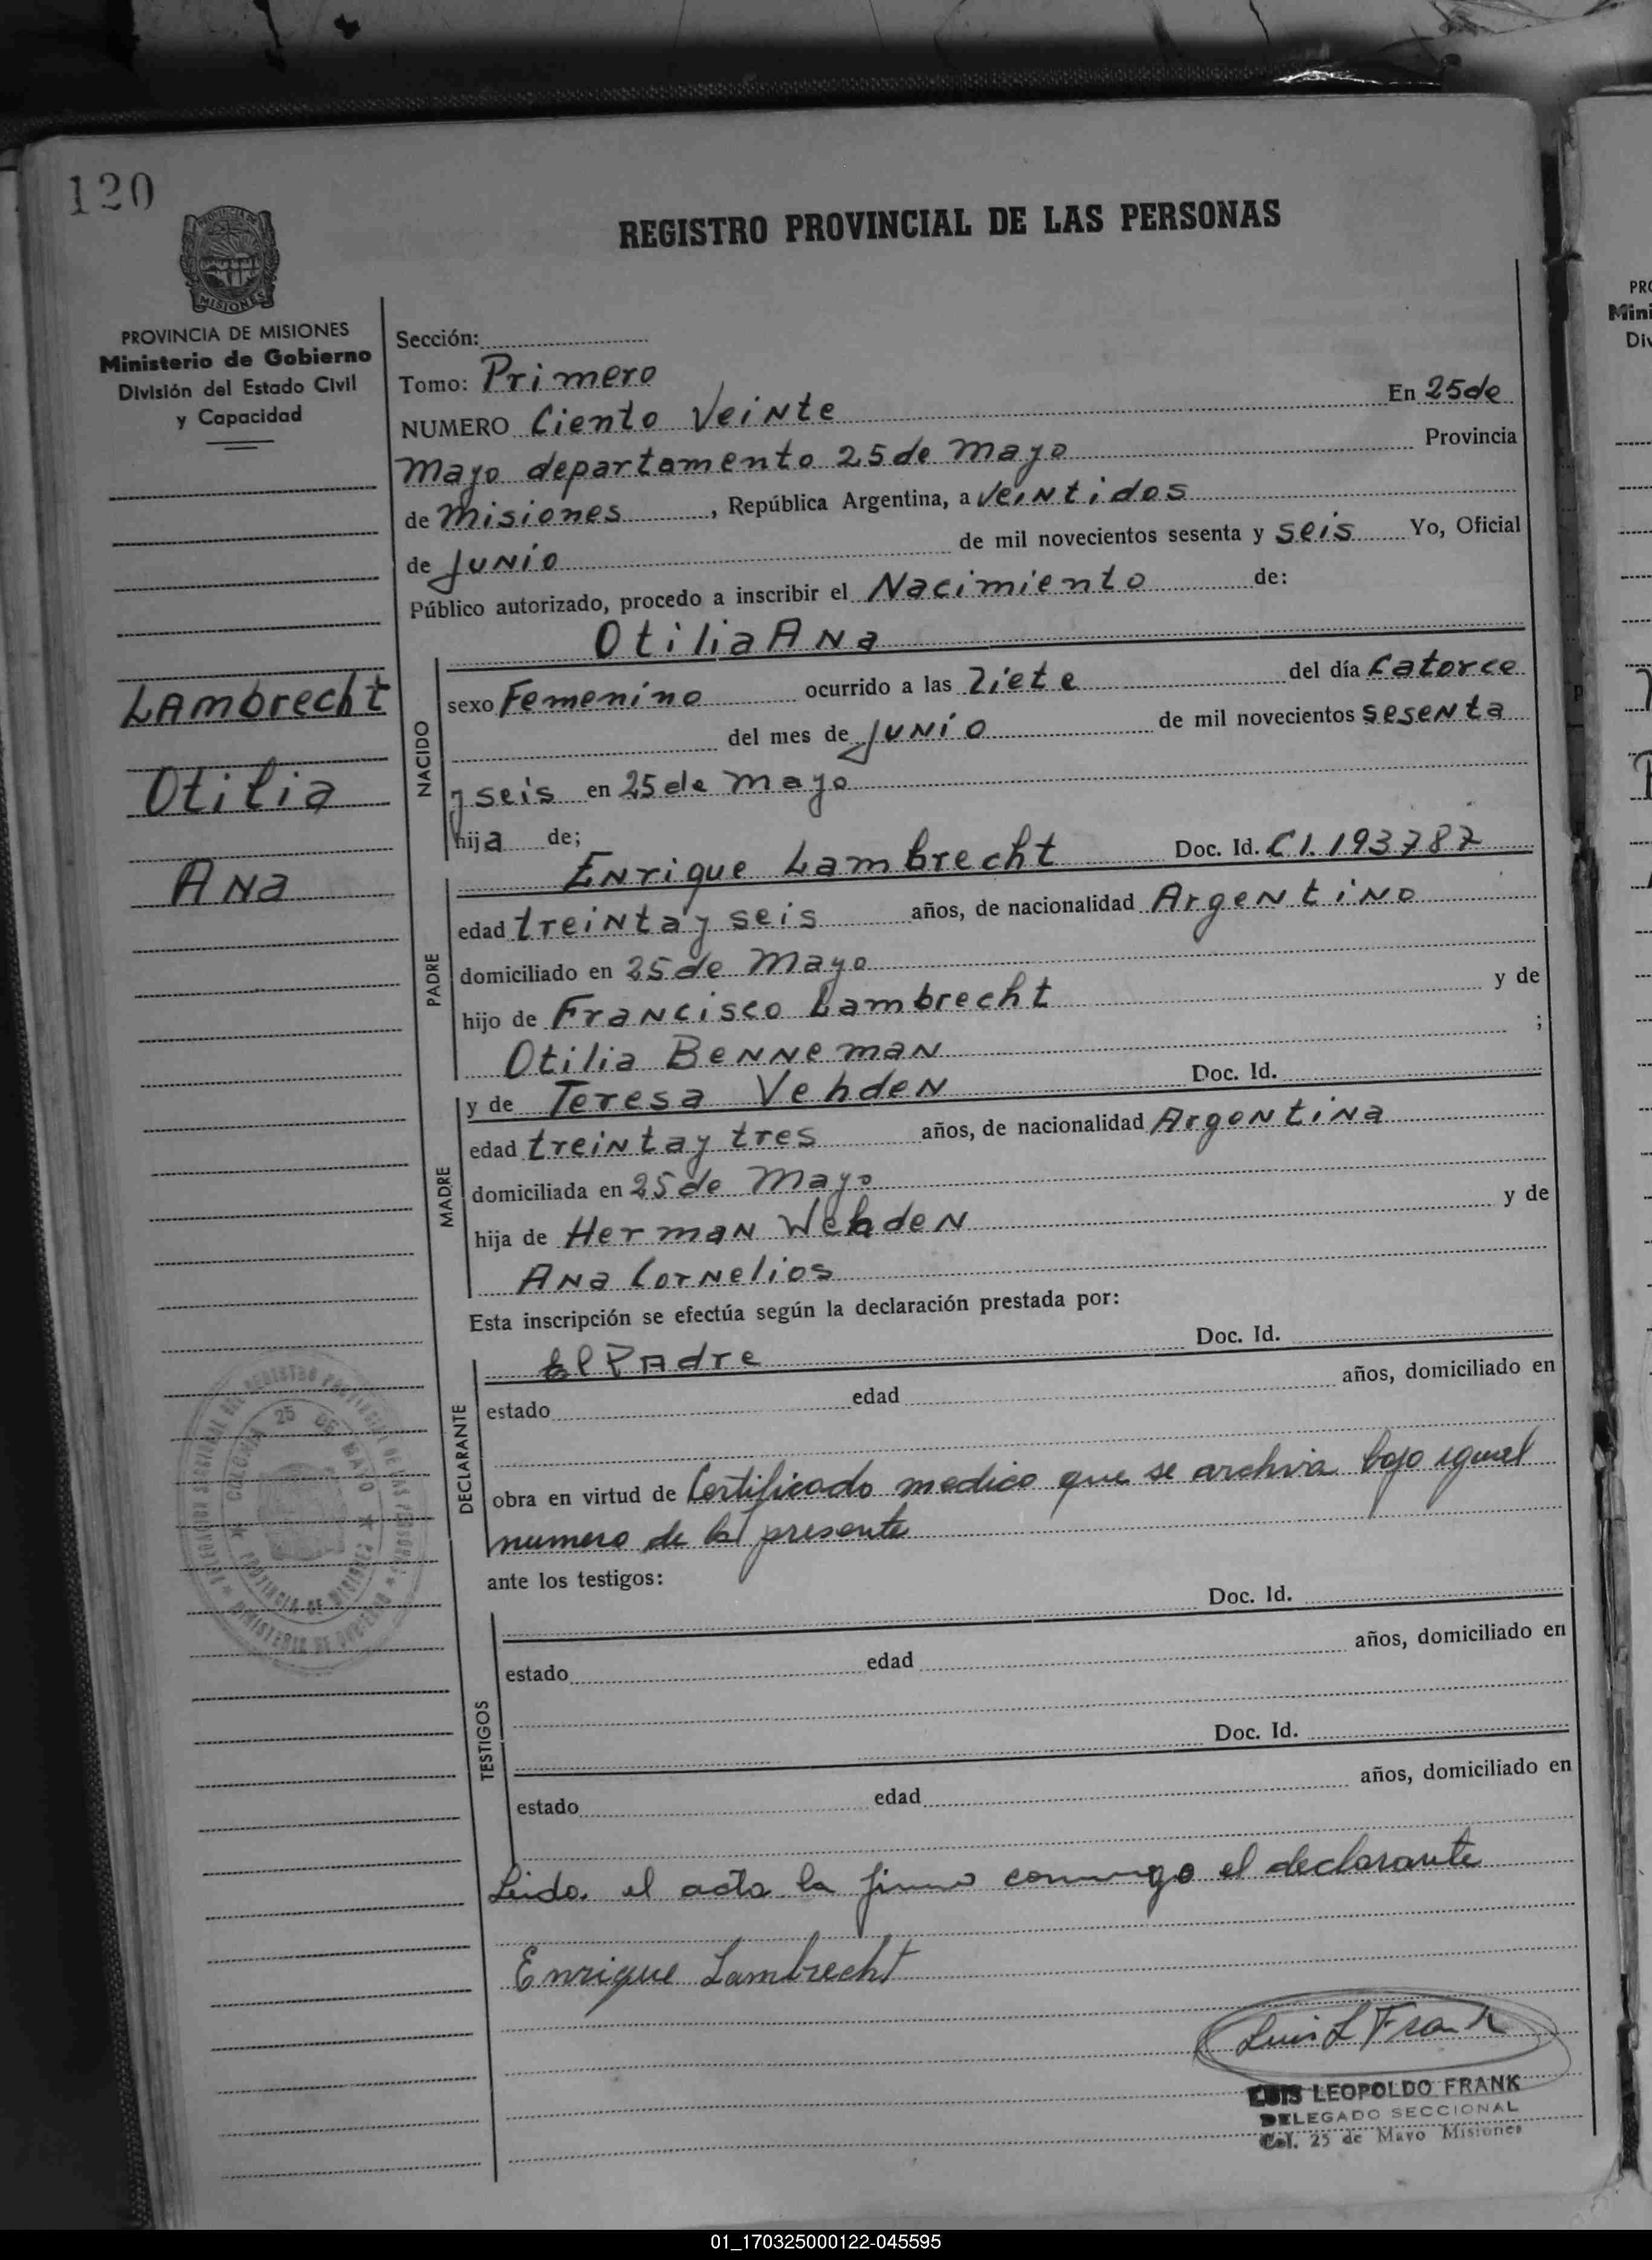 120
REGISTRO PROVINCIAL DE LAS PERSONAS
MISIONES
PROVINCIA DE MISIONES
Ministerio de Gobierno
División del Estado Civil
y Capacidad
Lambrecht
Otilia
Ana
Sección:
Tomo: Primero
NUMERO Ciento Veinte En 25 de
Mayo departamento 25 de Mayo Provincia
de Misiones, República Argentina, a Veintidos
de Junio de mil novecientos sesenta y seis Yo, Oficial
Público autorizado, procedo a inscribir el Nacimiento de:
Otilia Ana
NACIDO
sexo Femenino ocurrido a las Ziete del día Catorce
del mes de Junio de mil novecientos sesenta
y seis en 25 de Mayo
hija de;
Enrique Lambrecht Doc. Id. C.I. 193787
PADRE
edad treinta y seis años, de nacionalidad Argentino
domiciliado en 25 de Mayo
hijo de Francisco Lambrecht y de
Otilia Benneman ;
y de Teresa Vehden Doc. Id.
MADRE
edad treinta y tres años, de nacionalidad Argentina
domiciliada en 25 de Mayo
hija de Herman Wehden y de
Ana Cornelios
Esta inscripción se efectúa según la declaración prestada por:
El Padre Doc. Id.
DECLARANTE
estado edad años, domiciliado en
obra en virtud de Certificado medico que se archiva bajo igual
numero de la presente
ante los testigos:
Doc. Id.
TESTIGOS
estado edad años, domiciliado en
Doc. Id.
estado edad años, domiciliado en
Leido el acta la firma conmigo el declarante
Enrique Lambrecht
Luis L Frank
LUIS LEOPOLDO FRANK
DELEGADO SECCIONAL
Col. 25 de Mayo Misiones
COLONIA 25 DE MAYO
PROVINCIA DE MISIONES
MINISTERIO DE GOBIERNO
PRO
Mini
Div
01_170325000122-045595